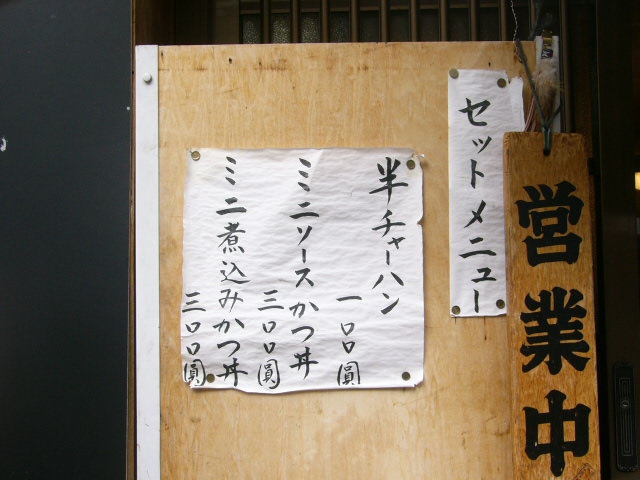 営業中
セットメニュー
半チャーハン
一口口圓
ミニソースかつ丼
三口口圓
ミニ煮込みかつ丼
三口口圓